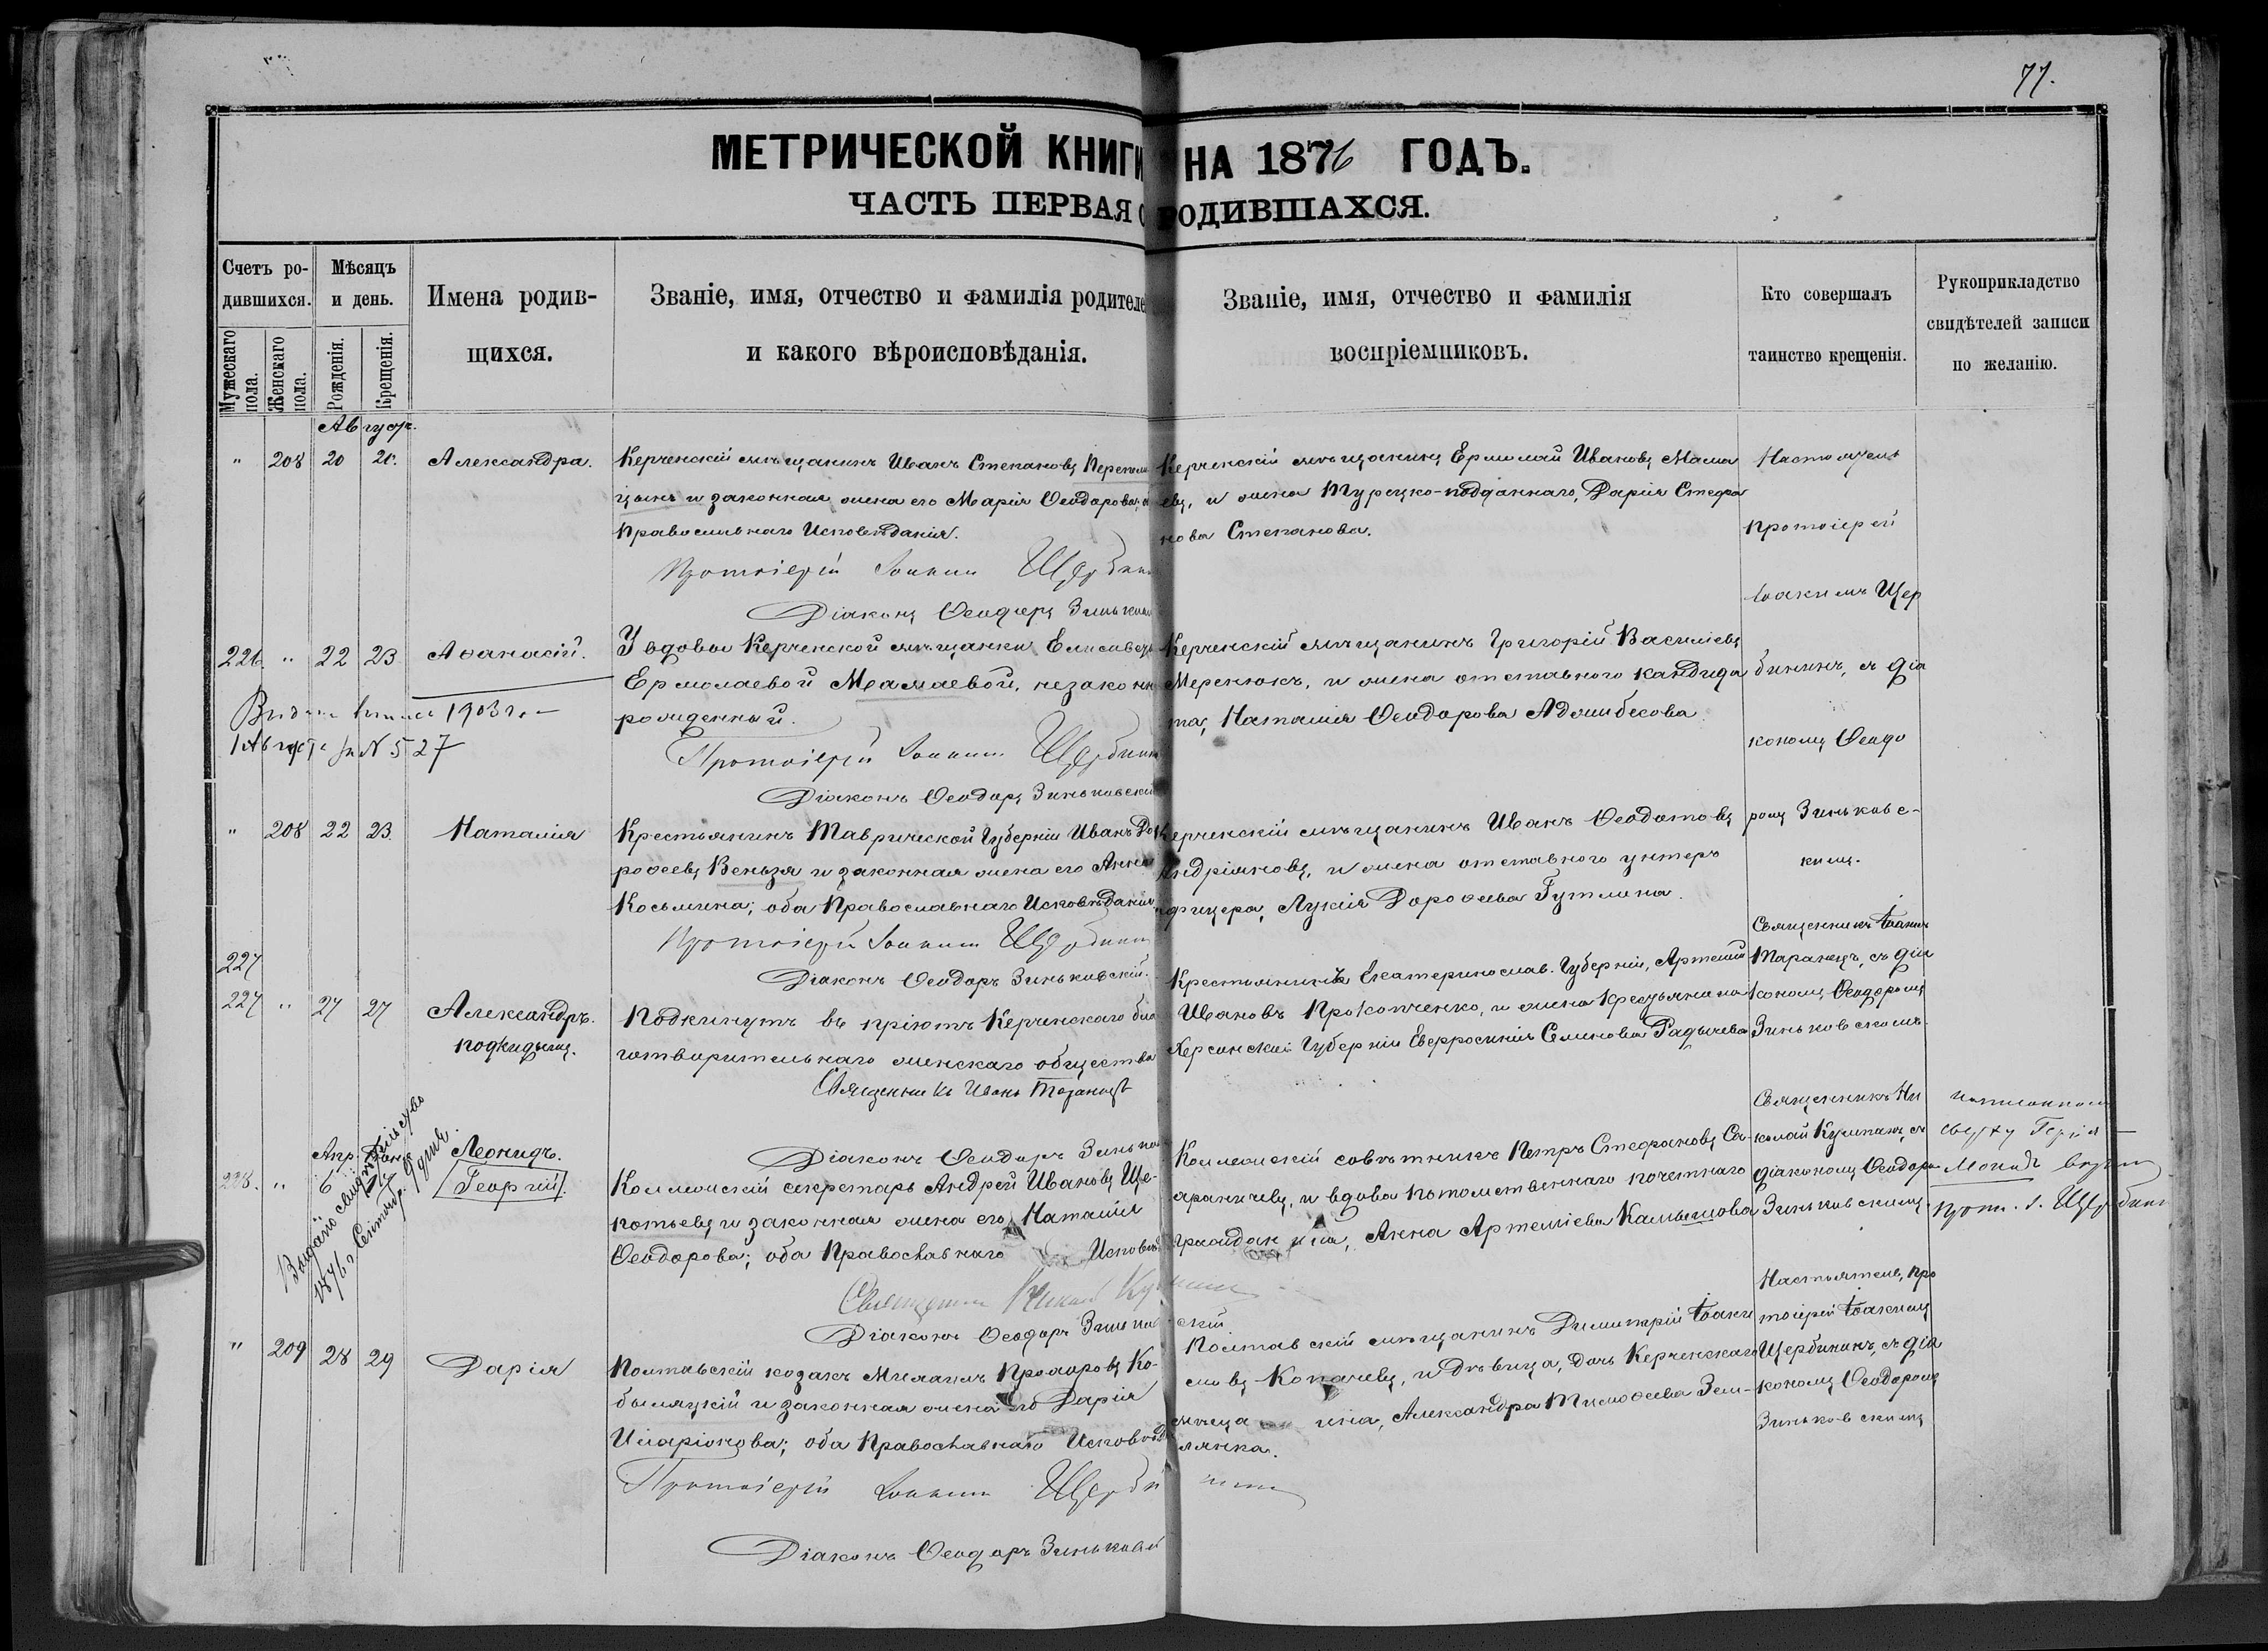 77.
МЕТРИЧЕСКОЙ КНИГИ НА 1876 ГОДЪ.
ЧАСТЬ ПЕРВАЯ О РОДИВШАХСЯ.
Счетъ ро-
дившихся.
Мужескаго пола.
Женскаго пола.
Мѣсяцъ
и день.
Рожденія.
Крещенія.
Имена родив-
щихся.
Званіе, имя, отчество и фамилія родителе
и какого вѣроисповѣданія.
Званіе, имя, отчество и фамилія
воспріемниковъ.
Кто совершалъ
таинство крещенія.
Рукоприкладство
свидѣтелей записи
по желанію.
Август.
" 208 20 20. Александра.
Керченскій мѣщанинъ Иванъ Степановъ
цынъ и законная жена его Марія Ѳеодорова;
Православнаго Исповѣданія.
Протоіерей Іоакимъ Щербин
Діаконъ Ѳеодоръ Зиньков
Керченскій мѣщанинъ Ермолай Ивановъ Мама
евъ, и жена Турецко-подданнаго, Дарія Стефа
нова Степанова.
Настоятель
протоіерей
Іоакимъ Щер
бининъ, съ діа
кономъ Ѳеодо
ромъ Зиньковс-
кимъ.
226 " 22 23 Аѳанасій.
У вдовы Керченской мѣщанки Елисавет
Ермолаевой Мамаевой, незаконно
рожденный.
Протоіерей Іоакимъ Щербин
Діаконъ Ѳеодоръ Зиньковскій
1903 г.
1 Августа за № 527
Керченскій мѣщанинъ Григорій Васильевъ
Меренюкъ, и жена отставного кандида
та, Наталія Ѳеодорова Аджибесова.
" 208 22 23. Наталія
Крестьянинъ Таврической Губерніи Иванъ До
роѳеевъ Веньзя и законная жена его Анна
Косьмина; оба Православнаго Исповѣданія.
Протоіерей Іоакимъ Щербин
Діаконъ Ѳеодоръ Зиньковскій.
Керченскій мѣщанинъ Иванъ Ѳеодотовъ
Андріяновъ, и жена отставного унтеръ
офицера, Лукія Дороѳеева Гутлина.
227
227 " 27 27 Александръ.
подкидышъ.
Подкинутъ въ пріютъ Керченскаго бла
готворительнаго женскаго общества
Священникъ Иванъ Таранецъ
Діаконъ Ѳеодоръ Зиньков
Крестьянинъ Екатеринослав. Губерніи, Артемій
Ивановъ Прокопченко, и жена крестьянина
Херсонской Губерніи Евфросинія Семенова Радычева
Священникъ Іоаннъ
Таранецъ, съ діа
кономъ Ѳеодоромъ
Зиньковскимъ.
228. " Апр. 6
Леонидъ.
[Георгій].
Выдано свидѣтельство
1876 г. Сентября 9 дня.
Коллежскій секретарь Андрей Ивановъ Ще-
котьевъ и законная жена его Наталія
Ѳеодорова; оба Православнаго Исповѣд
Священникъ Николай
Діаконъ Ѳеодоръ Зиньковскій
Коллежскій совѣтникъ Петръ Стефановъ Са-
аранчевъ, и вдова потомственнаго почетнаго
гражданина, Анна Артеміева Камышова
Священникъ Ни
колай съ
діакономъ Ѳеодоро
Зиньковскимъ
написанному
сверху
вѣрить
прот. І. Щербин
" 209 28 29 Дарія
Полтавскій козакъ Михаилъ Прохоровъ Ко-
быляцкій и законная жена его Дарія
Иларіонова; оба Православнаго Исповѣд
Протоіерей Іоакимъ Щербининъ
Діаконъ Ѳеодоръ Зиньковск
Полтавскій мѣщанинъ Димитрій Іоаки
мовъ Копачевъ, и дѣвица, дочь Керченскаго
мѣщанина, Александра Тимоѳеева Зем-
лянка.
Настоятель, про
тоіерей Іоакимъ
Щербининъ, съ діа
кономъ Ѳеодоромъ
Зиньковскимъ